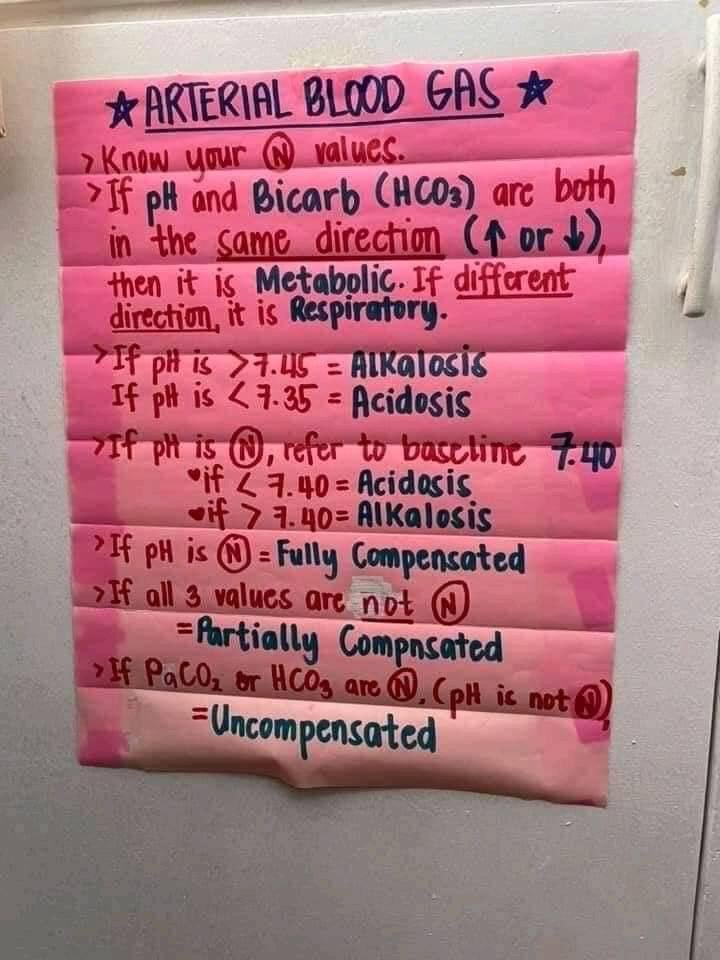 ☆ ARTERIAL BLOOD GAS ☆
> Know your Ⓝ values.
> If pH and Bicarb (HCO₃) are both
in the same direction (↑ or ↓),
then it is Metabolic. If different
direction, it is Respiratory.
> If pH is > 7.45 = Alkalosis
If pH is < 7.35 = Acidosis
> If pH is Ⓝ, refer to baseline 7.40
♥if < 7.40 = Acidosis
♥if > 7.40 = Alkalosis
> If pH is Ⓝ = Fully Compensated
> If all 3 values are not Ⓝ
= Partially Compnsated
> If PaCO₂ or HCO₃ are Ⓝ, (pH is not Ⓝ),
= Uncompensated